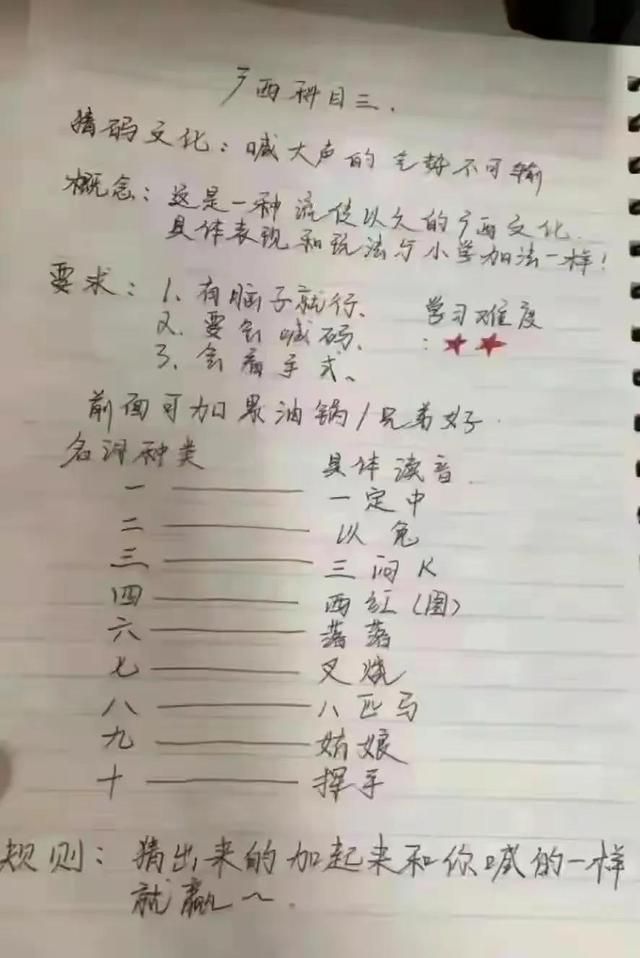 广西科目三.
猜码文化：喊大声的气势不可输
概念：这是一种流传以久的广西文化.
具体表现和玩法与小学加法一样！
要求：1、有脑子就行、 学习难度
2、要会喊码、 ：★★
3、会看手式、
前面可加果油锅/兄弟好.
名词种类 具体读音
一 —— 一定中
二 —— 以兔
三 —— 三闷K
四 —— 西红（图）
六 —— 落落
七 —— 叉烧
八 —— 八匹马
九 —— 姑娘
十 —— 挥手
规则：猜出来的加起来和你喊的一样
就赢～.